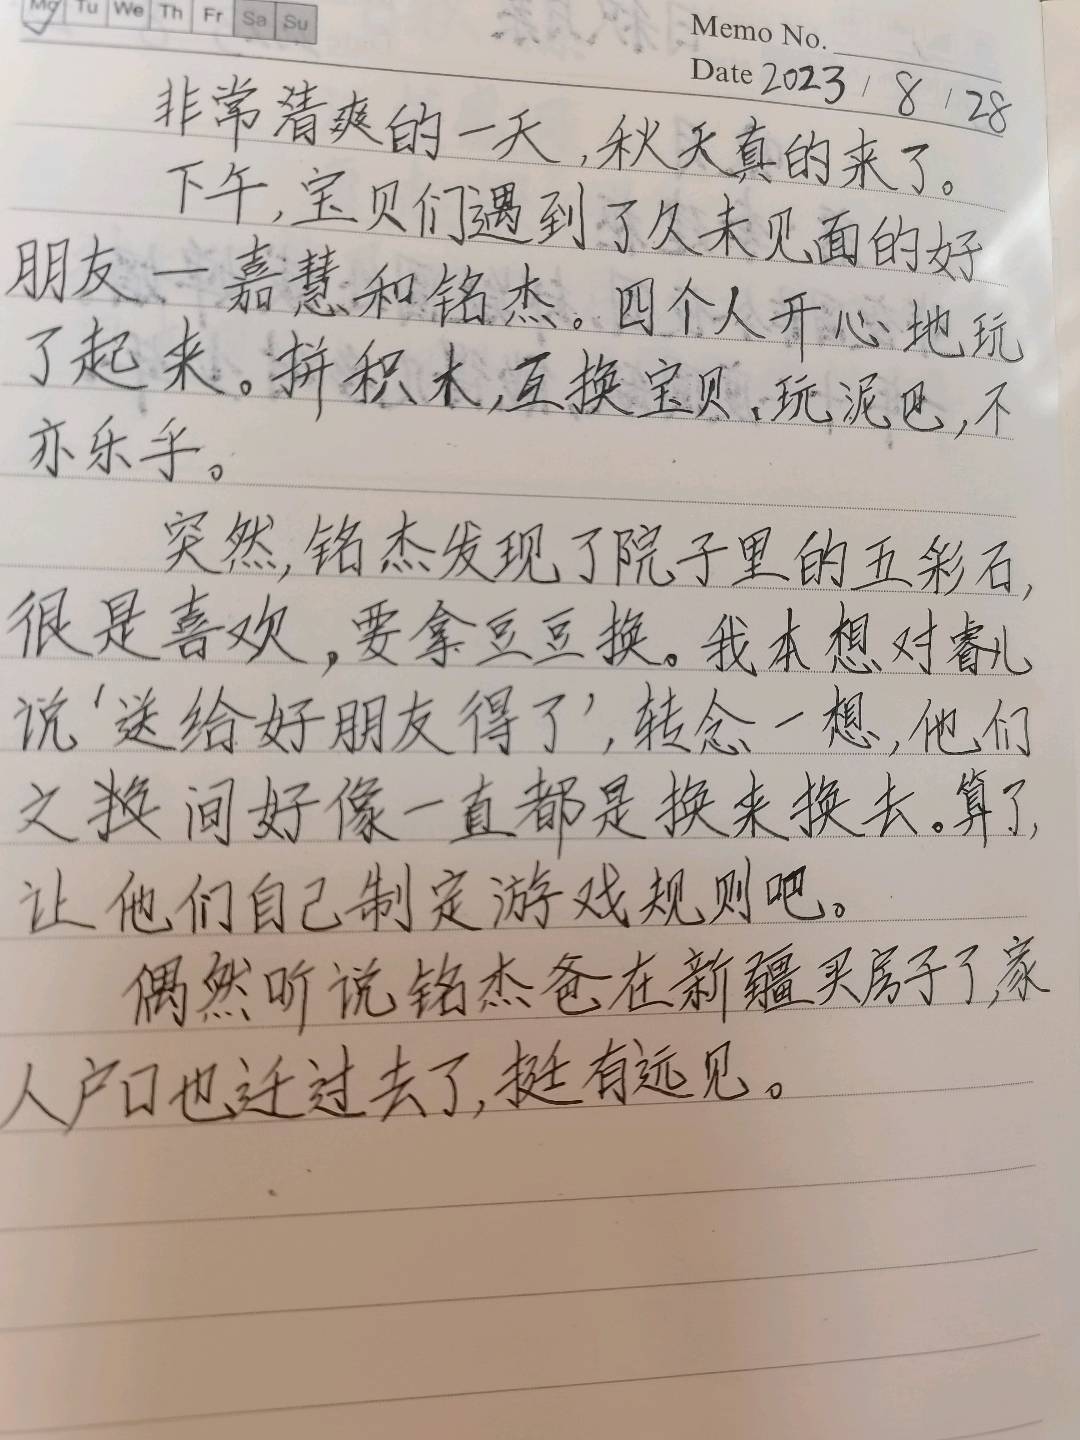 Mo Tu We Th Fr Sa Su
Memo No.
Date 2023 / 8 / 28
非常清爽的一天,秋天真的来了。
下午,宝贝们遇到了久未见面的好
朋友—嘉慧和铭杰。四个人开心地玩
了起来。拼积木,互换宝贝、玩泥巴,不
亦乐乎。
突然,铭杰发现了院子里的五彩石,
很是喜欢,要拿豆豆换。我本想对睿儿
说'送给好朋友得了',转念一想,他们
之间好像一直都是换来换去。算了,
让他们自己制定游戏规则吧。
偶然听说铭杰爸在新疆买房子了,家
人户口也迁过去了,挺有远见。